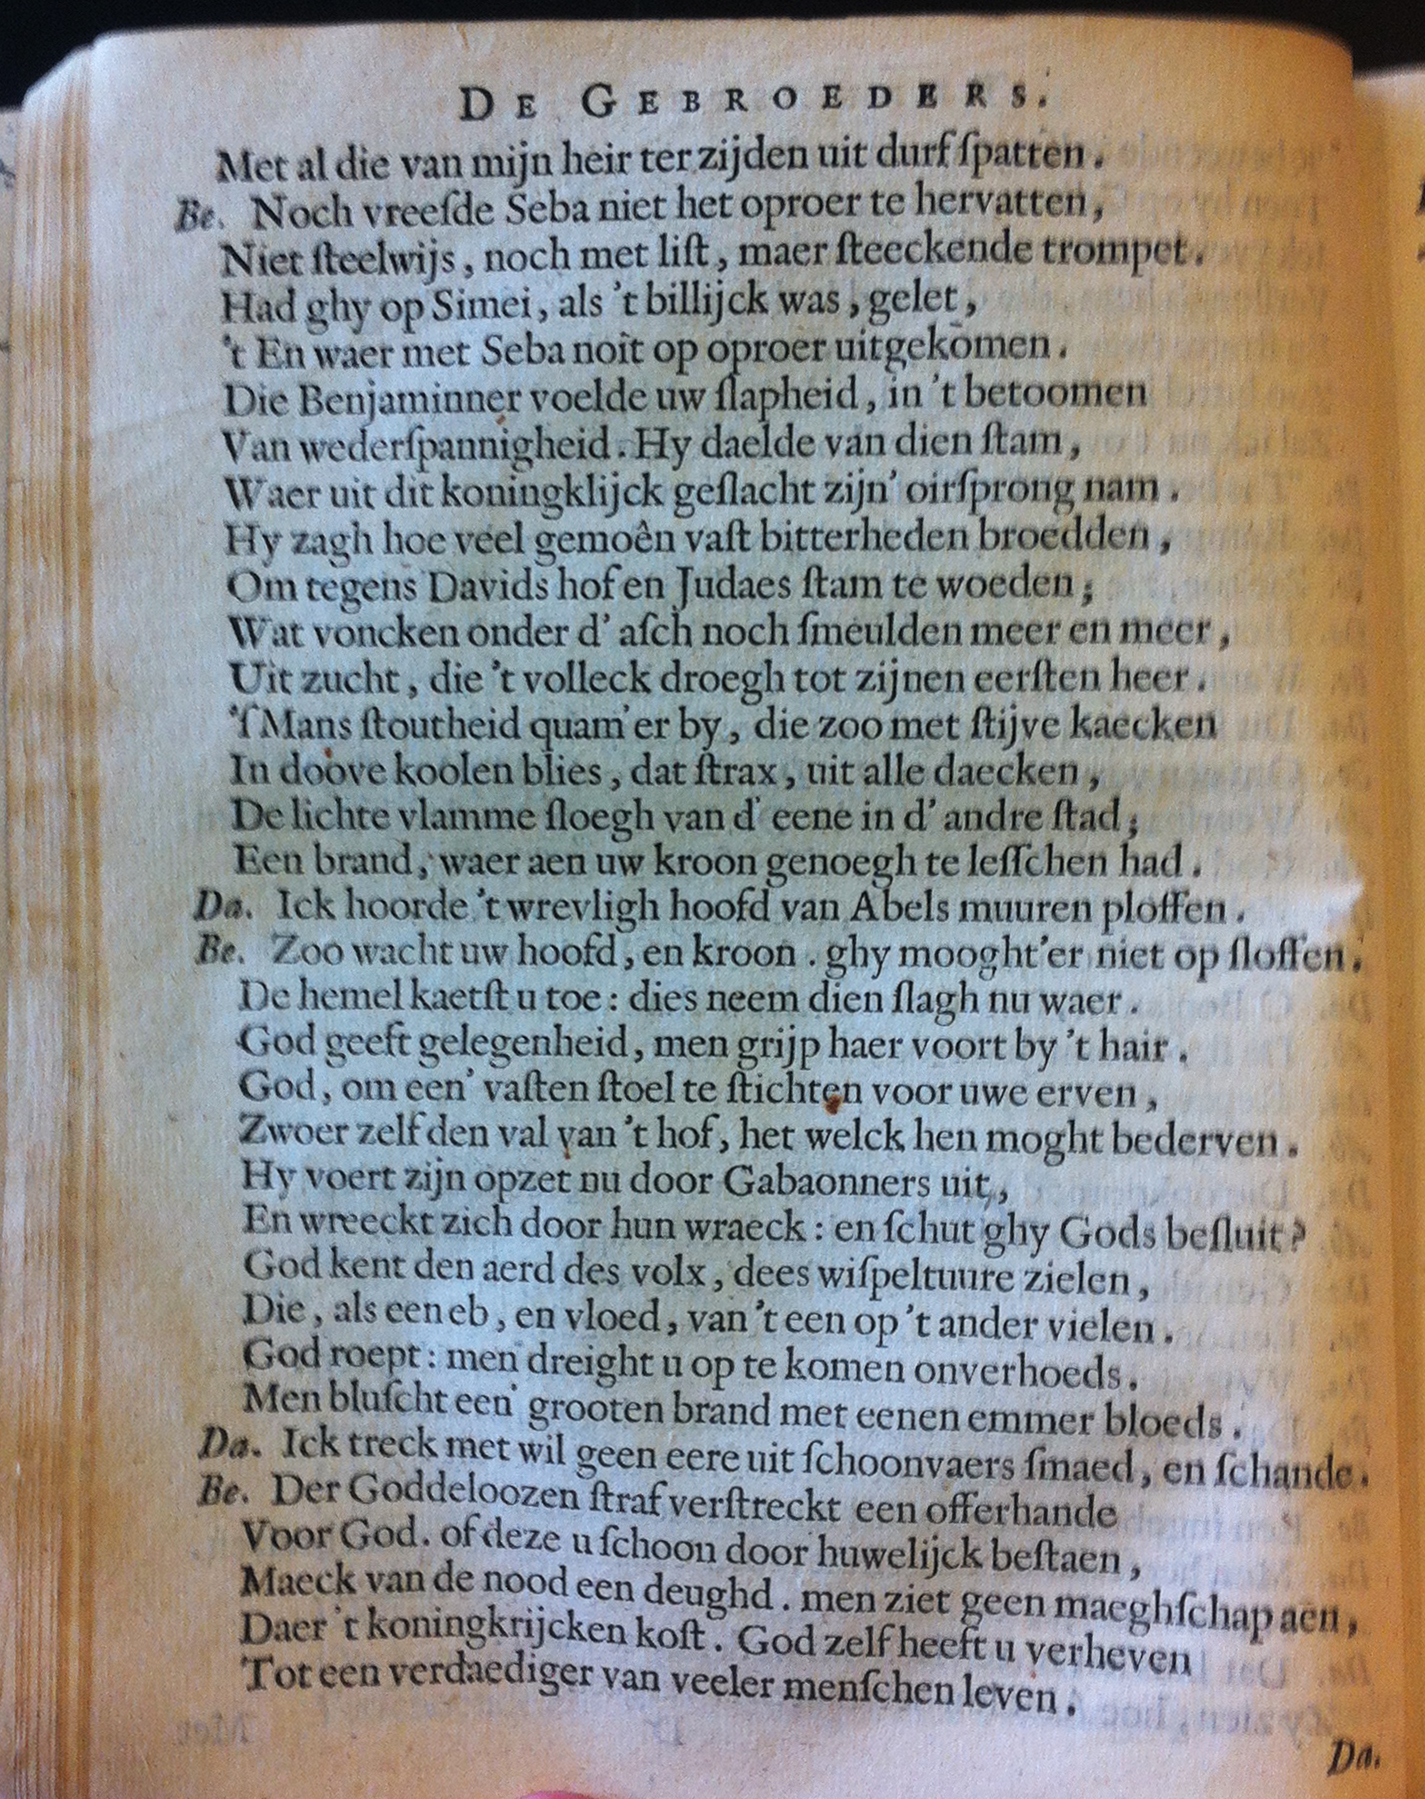 DE GEBROEDERS.
Met al die van mijn heir ter zijden uit durf ſpatten.
Be. Noch vreeſde Seba niet het oproer te hervatten,
Niet ſteelwijs, noch met liſt, maer ſteeckende trompet.
Had ghy op Simei, als 't billijck was, gelet,
't En waer met Seba noit op oproer uitgekomen.
Die Benjaminner voelde uw ſlapheid, in 't betoomen
Van wederſpannigheid. Hy daelde van dien ſtam,
Waer uit dit koningklijck geſlacht zijn' oirſprong nam.
Hy zagh hoe veel gemoên vaſt bitterheden broedden,
Om tegens Davids hof en Judaes ſtam te woeden;
Wat voncken onder d' aſch noch ſmeulden meer en meer,
Uit zucht, die 't volleck droegh tot zijnen eerſten heer.
'ſ Mans ſtoutheid quam'er by, die zoo met ſtijve kaecken
In doove koolen blies, dat ſtrax, uit alle daecken,
De lichte vlamme ſloegh van d' eene in d' andre ſtad;
Een brand, waer aen uw kroon genoegh te leſſchen had.
Da. Ick hoorde 't wrevligh hoofd van Abels muuren ploffen.
Be. Zoo wacht uw hoofd, en kroon. ghy mooght'er niet op ſloffen.
De hemel kaetſt u toe: dies neem dien ſlagh nu waer.
God geeft gelegenheid, men grijp haer voort by 't hair.
God, om een' vaſten ſtoel te ſtichten voor uwe erven,
Zwoer zelf den val van 't hof, het welck hen moght bederven.
Hy voert zijn opzet nu door Gabaonners uit,
En wreeckt zich door hun wraeck: en ſchut ghy Gods beſluit?
God kent den aerd des volx, dees wiſpeltuure zielen,
Die, als een eb, en vloed, van 't een op 't ander vielen.
God roept: men dreight u op te komen onverhoeds.
Men bluſcht een' grooten brand met eenen emmer bloeds.
Da. Ick treck met wil geen eere uit ſchoonvaers ſmaed, en ſchande.
Be. Der Goddeloozen ſtraf verſtreckt een offerhande
Voor God. of deze u ſchoon door huwelijck beſtaen,
Maeck van de nood een deughd. men ziet geen maeghſchap aen,
Daer 't koningkrijcken koſt. God zelf heeft u verheven
Tot een verdaediger van veeler menſchen leven.
Da.